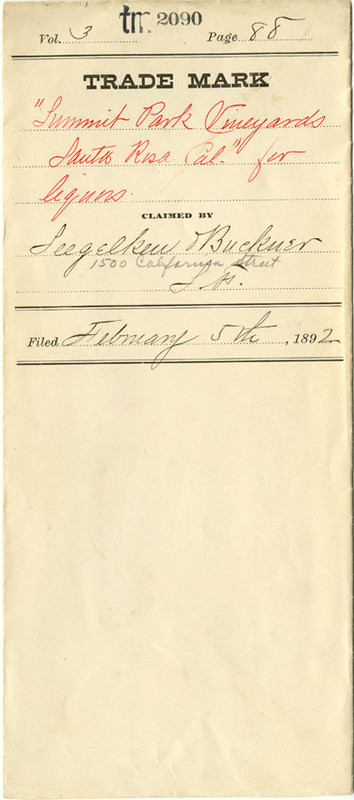 tm 2090
Vol. 3 Page 88
TRADE MARK
"Summit Park Vineyards
Santa Rosa Cal." for
liquors.
CLAIMED BY
Seegelken & Buckner
1500 California Street
S.F.
Filed February 5th, 1892